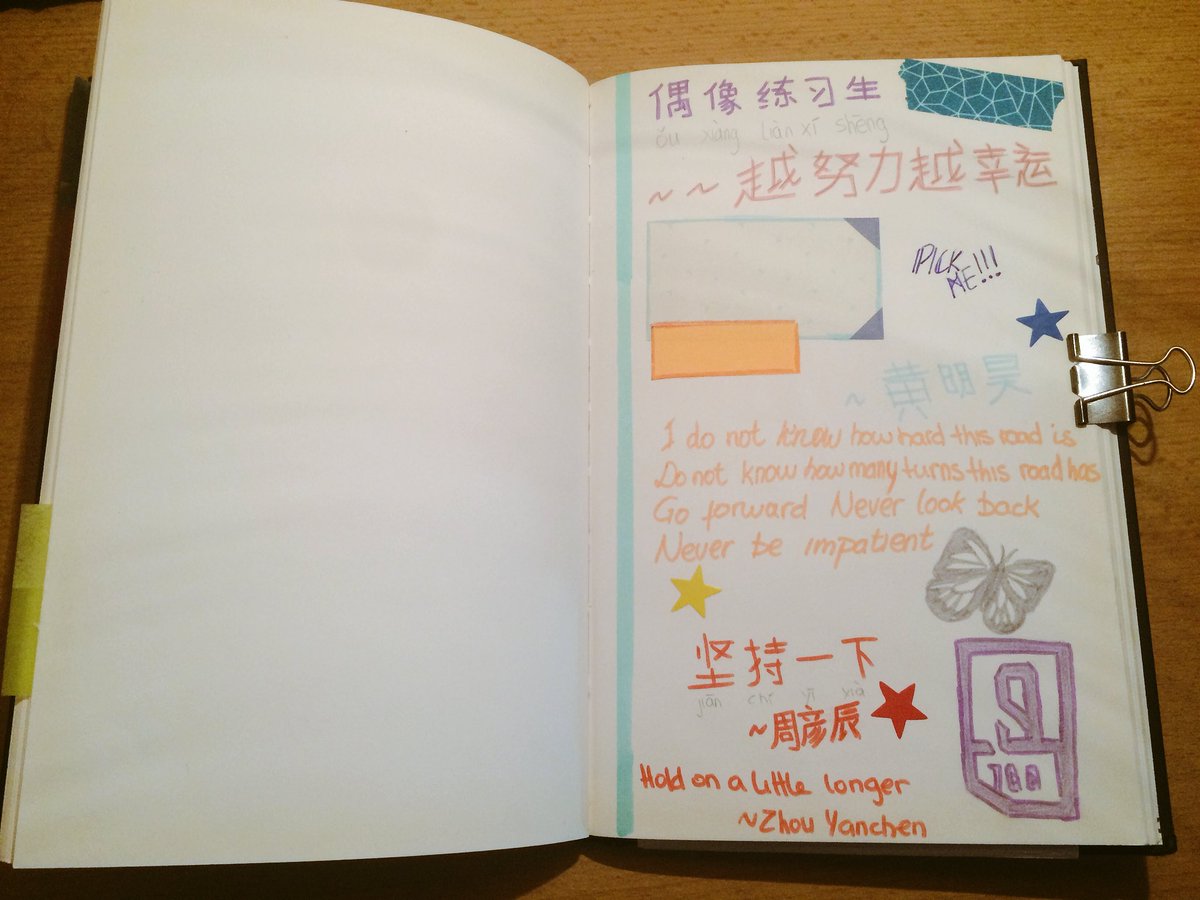 偶像练习生
ǒu xiàng liàn xí shēng
~~越努力越幸运
PICK
ME!!!
~黄明昊
I do not know how hard this road is
Do not know how many turns this road has
Go forward Never look back
Never be impatient
坚持一下
jiān chí yī xià
~周彦辰
Hold on a little longer
~Zhou Yanchen